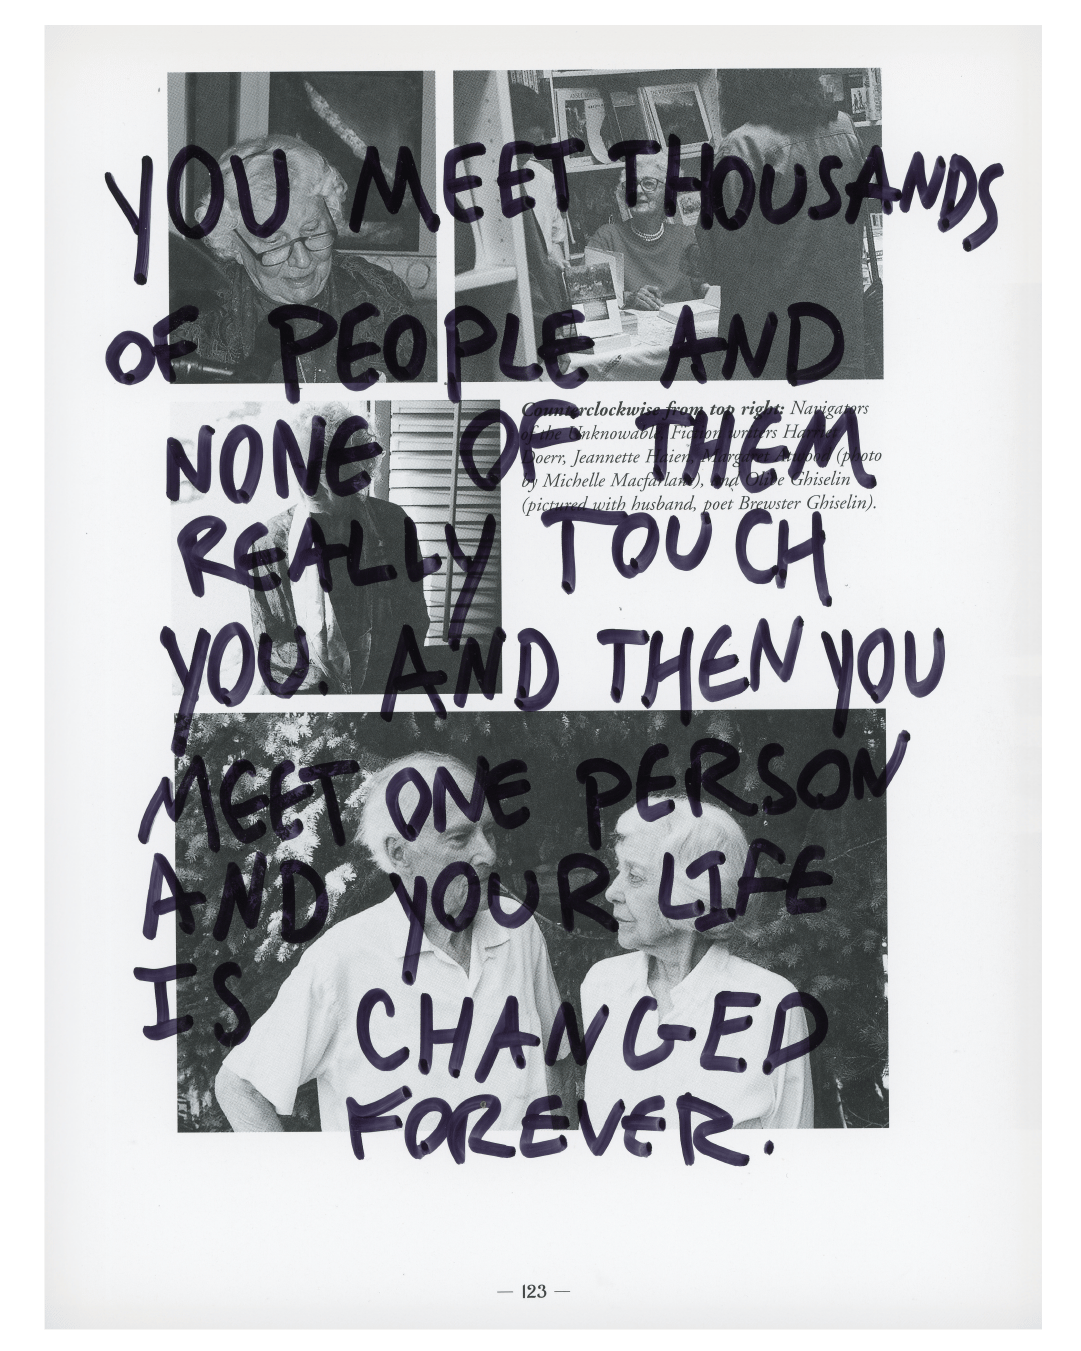 YOU MEET THOUSANDS
OF PEOPLE AND
Counterclockwise from top right: Navigators
of the Unknowable, Fiction writers Harriet
Doerr, Jeannette Haien, Margaret Atwood (photo
by Michelle Macfarlane), and Olive Ghiselin
(pictured with husband, poet Brewster Ghiselin).
NONE OF THEM
REALLY TOUCH
YOU. AND THEN YOU
MEET ONE PERSON
AND YOUR LIFE
IS CHANGED
FOREVER.
— 123 —